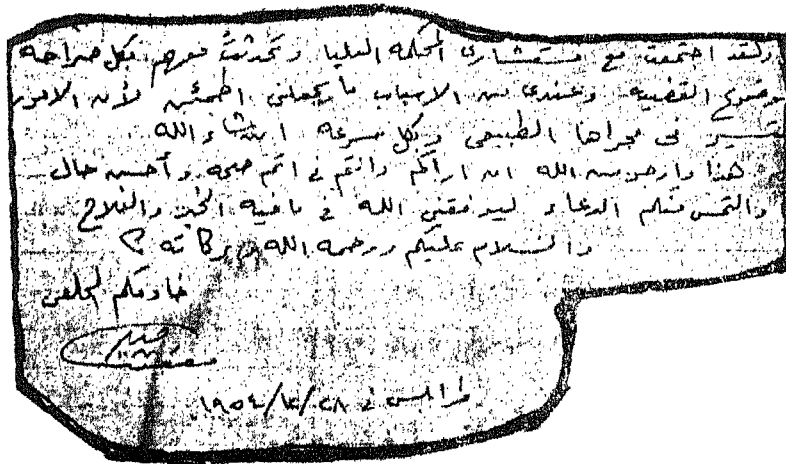 ولقد اجتمعت مع مستشارى المحكمه العليا وتحدثت معهم بكل صراحه
موضوع القضيه وعندى من الاسباب ما يجعلنى اطمئن لأن الامور
تسير فى مجراها الطبيعى وبكل سرعه ان شاء الله
هذا وارجو من الله ان اراكم وانتم فى اتم صحه وأحسن حال
والتمس منكم الدعاء ليوفقنى الله فى ما فيه الخير والفلاح
والسلام عليكم ورحمه الله وبركاته
خادمكم المخلص
طرابلس فى ٢٨/ /١٩٥٤